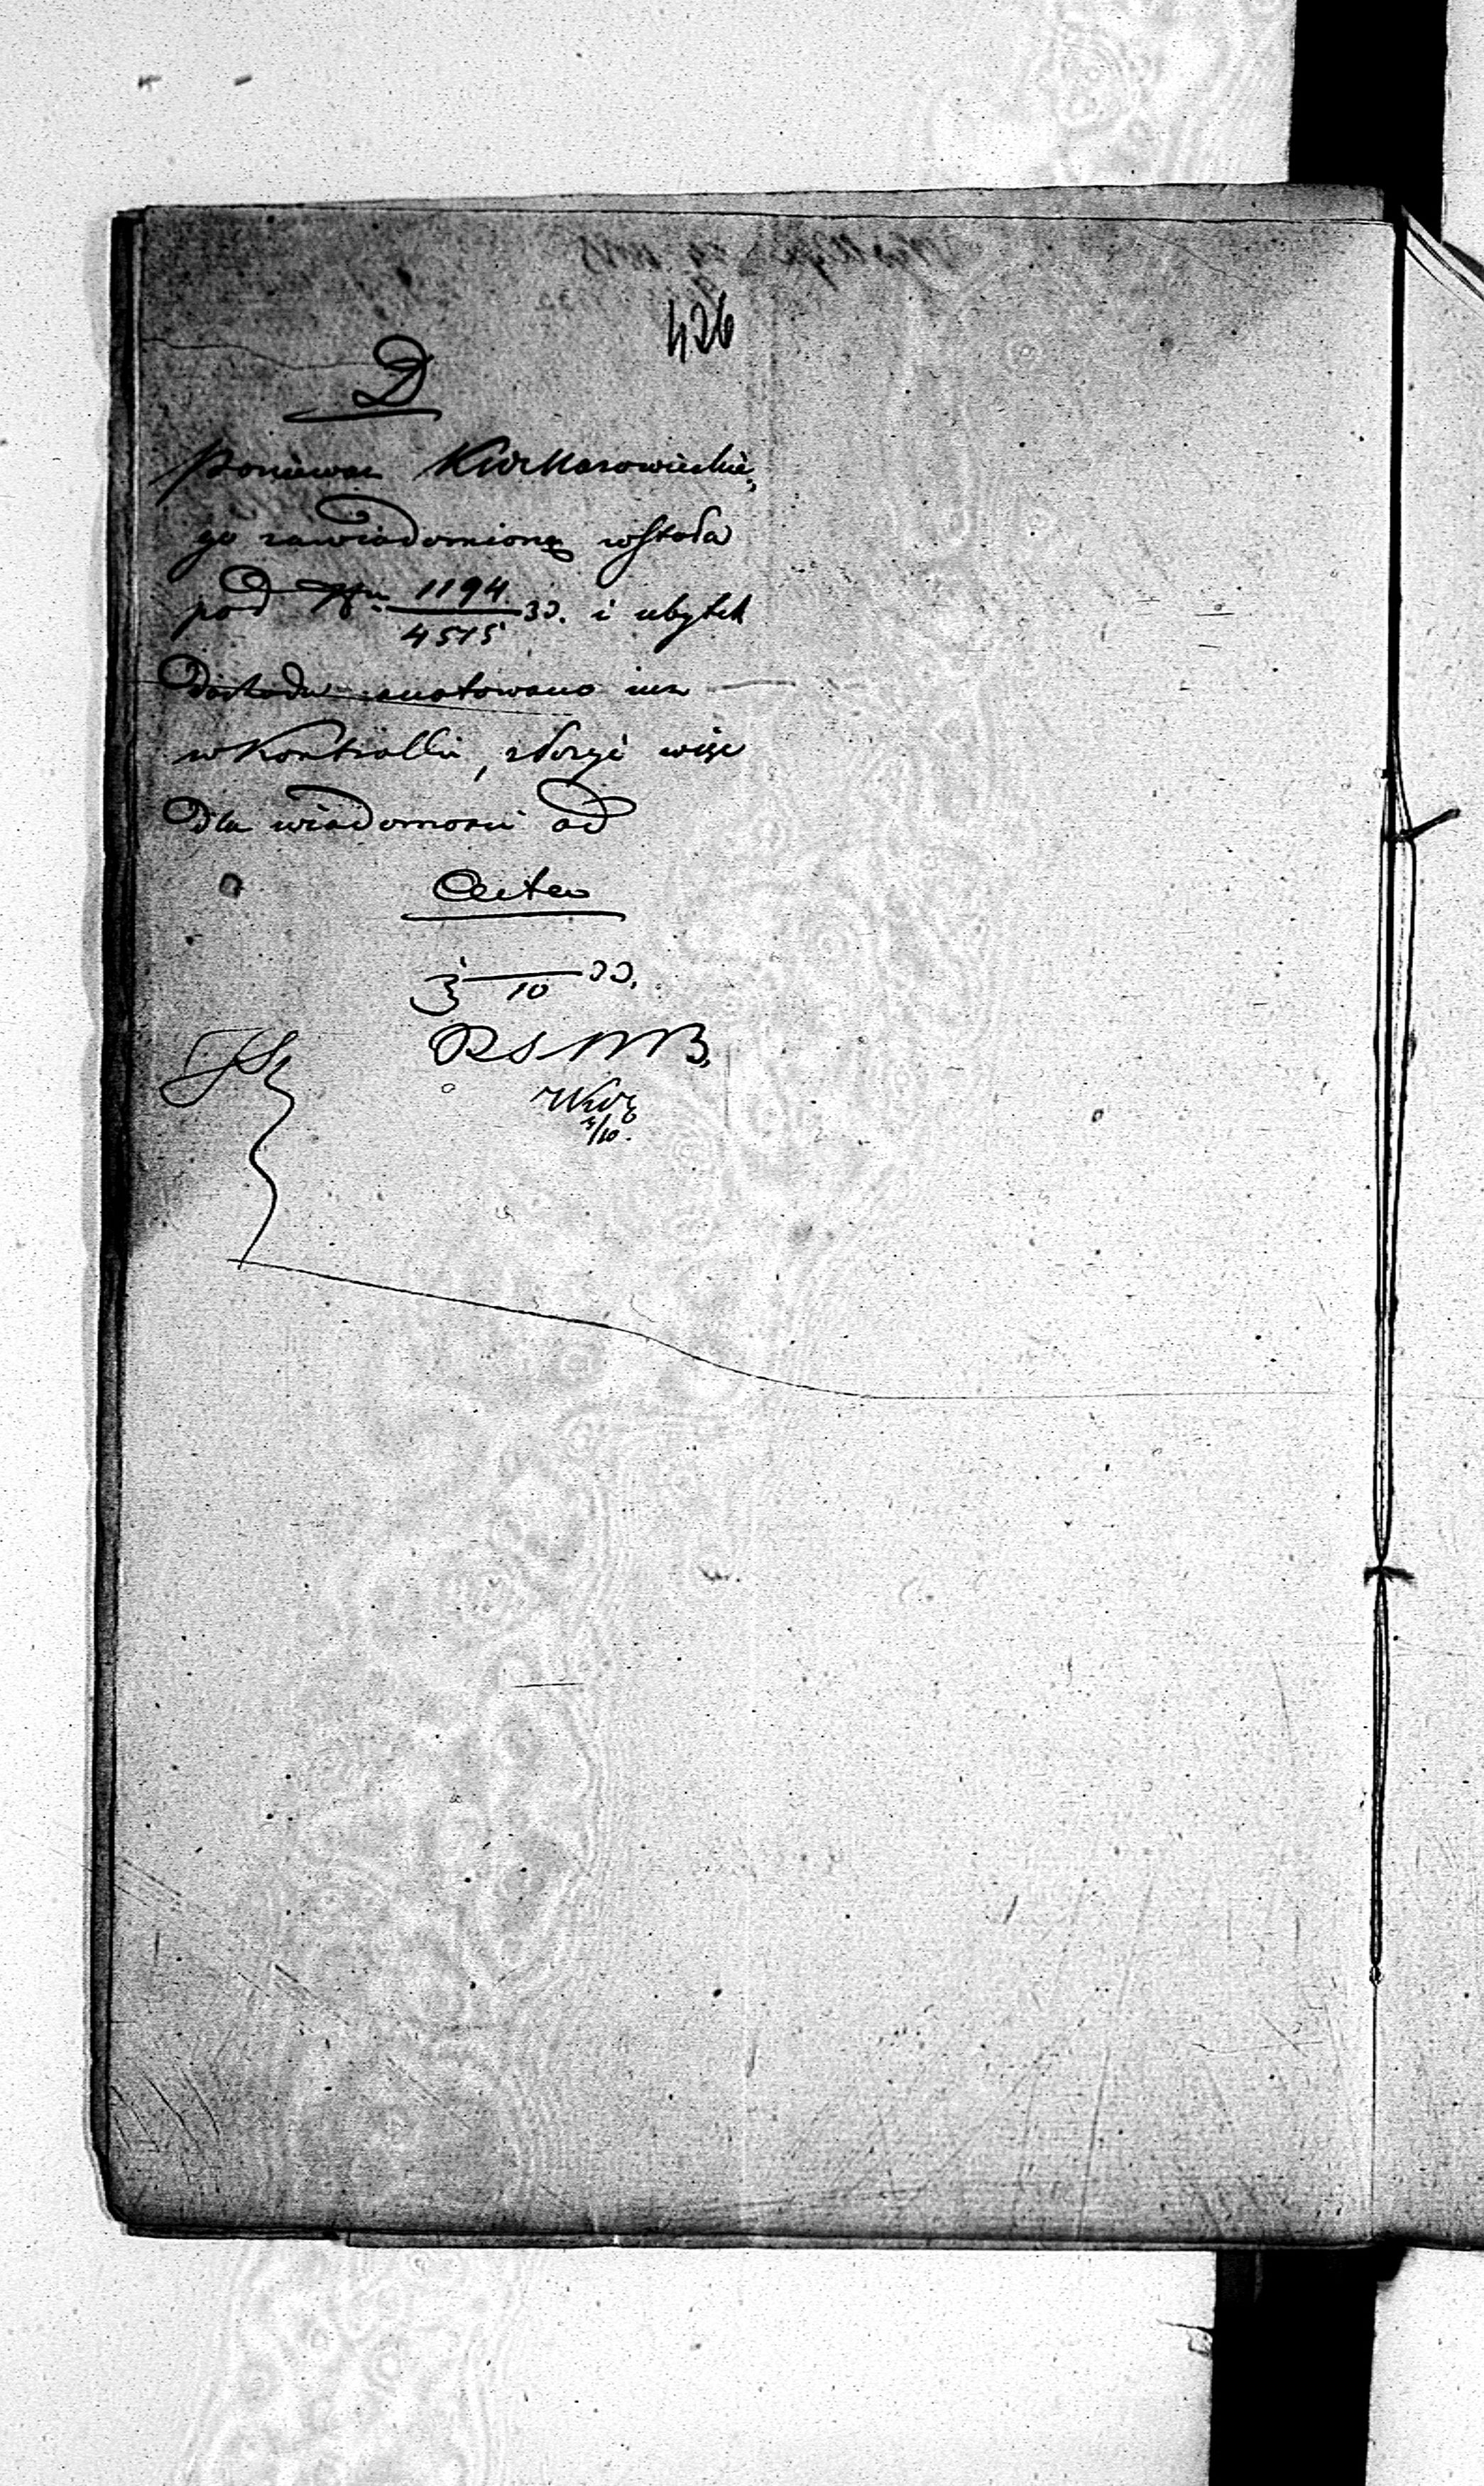 426
D
ponieważ KwMazowieckie
go zawiadomioną została
pod Nr 1194/4515 33. i ubytek
dochodu zanotowano już
w Kontrolli, złożyć więc
dla wiadomości ad
Acta
3/10 33.
RSWB.
3/10.